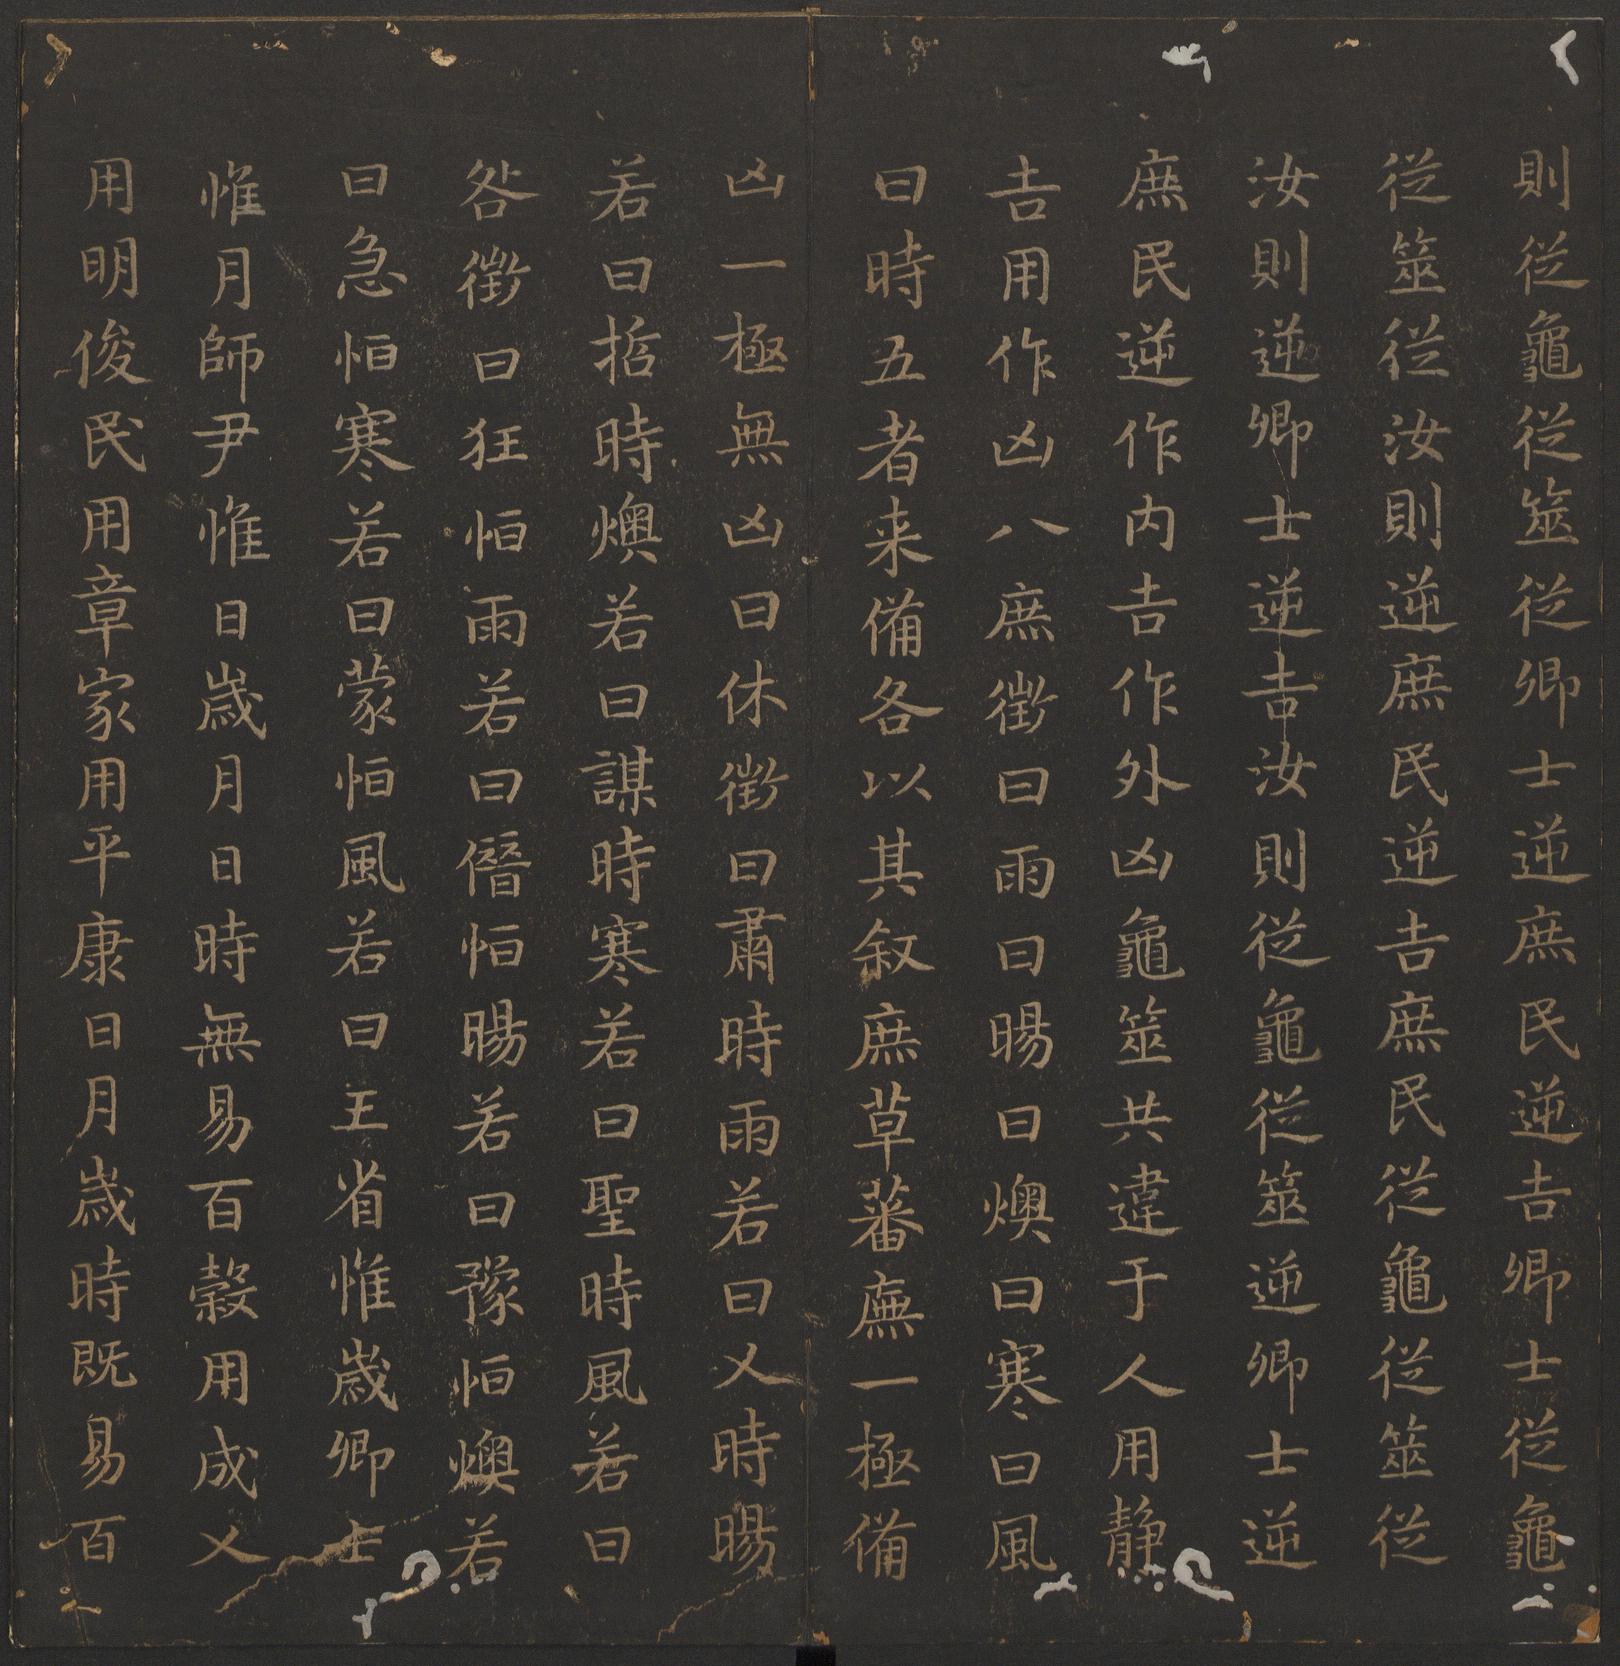 則從龜從筮從卿士逆庶民逆吉卿士從龜
從筮從汝則逆庶民逆吉庶民從龜從筮從
汝則逆卿士逆吉汝則從龜從筮逆卿士逆
庶民逆作内吉作外凶龜筮共違于人用静
吉用作凶八庶徵曰雨曰暘曰燠曰寒曰風
曰時五者来備各以其叙庶草蕃廡一極備
凶一極無凶曰休徵曰肅時雨若曰乂時暘
若曰哲時燠若曰謀時寒若曰聖時風若曰
咎徵曰狂恒雨若曰僭恒暘若曰豫恒燠若
曰急恒寒若曰蒙恒風若曰王省惟歲卿士
惟月師尹惟日歲月日時無易百穀用成乂
用明俊民用章家用平康日月歲時既易百